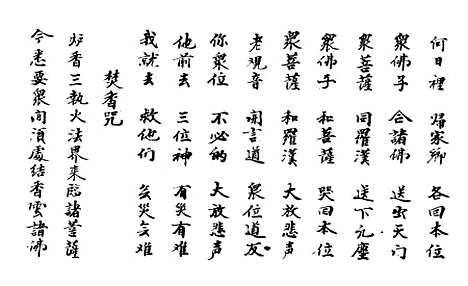 何日裡 歸家鄉 各回本位
衆佛子 合諸佛 送出天门
衆菩薩 同羅漢 送下九塵
衆佛子 和菩薩 哭回本位
衆菩薩 和羅漢 大放悲声
老观音 開言道 衆位道友
你衆位 不必的 大放悲声
他前去 三位神 有災有难
我就去 救他们 灾难
焚香咒
炉香三熱火法界来臨諸菩薩
今悉要衆向須處结香雲諸佛